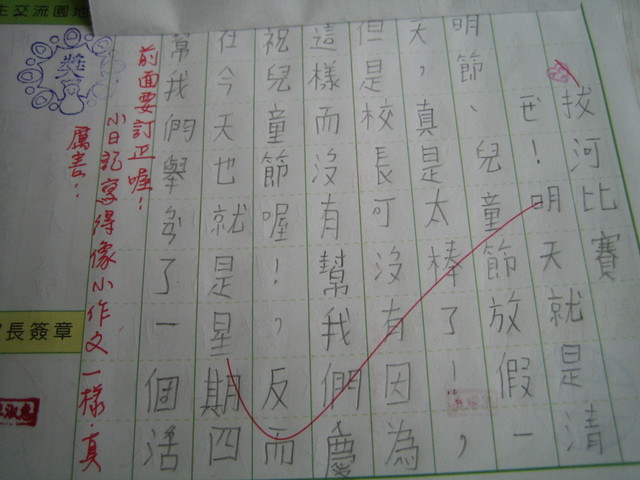 拔河比賽
！明天就是清
明節、兒童節放假一
天，真是太棒了！，
但是校長可沒有因為
這樣而沒有幫我們慶
祝兒童節喔！，反而
在今天也就是星期四
幫我們舉辦了一個活
前面要訂正喔！
小日記寫得像小作文一樣，真
厲害！
獎
生交流園地
長簽章